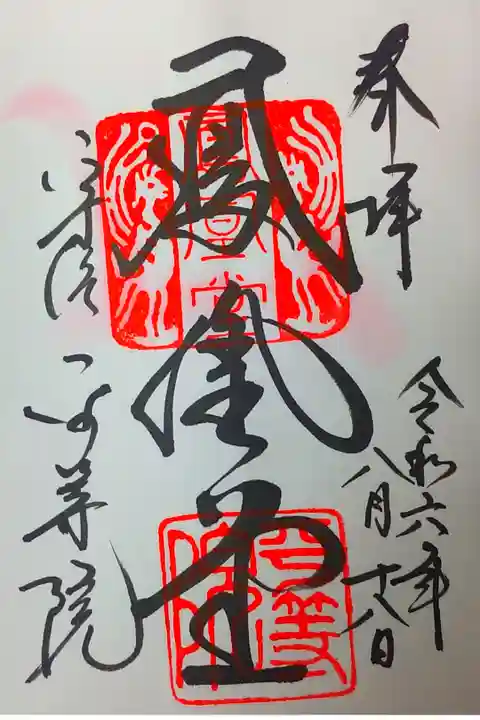 奉拝
令和六年
八月十八日
鳳凰堂
鳳凰堂
平等院
宇治
平等院